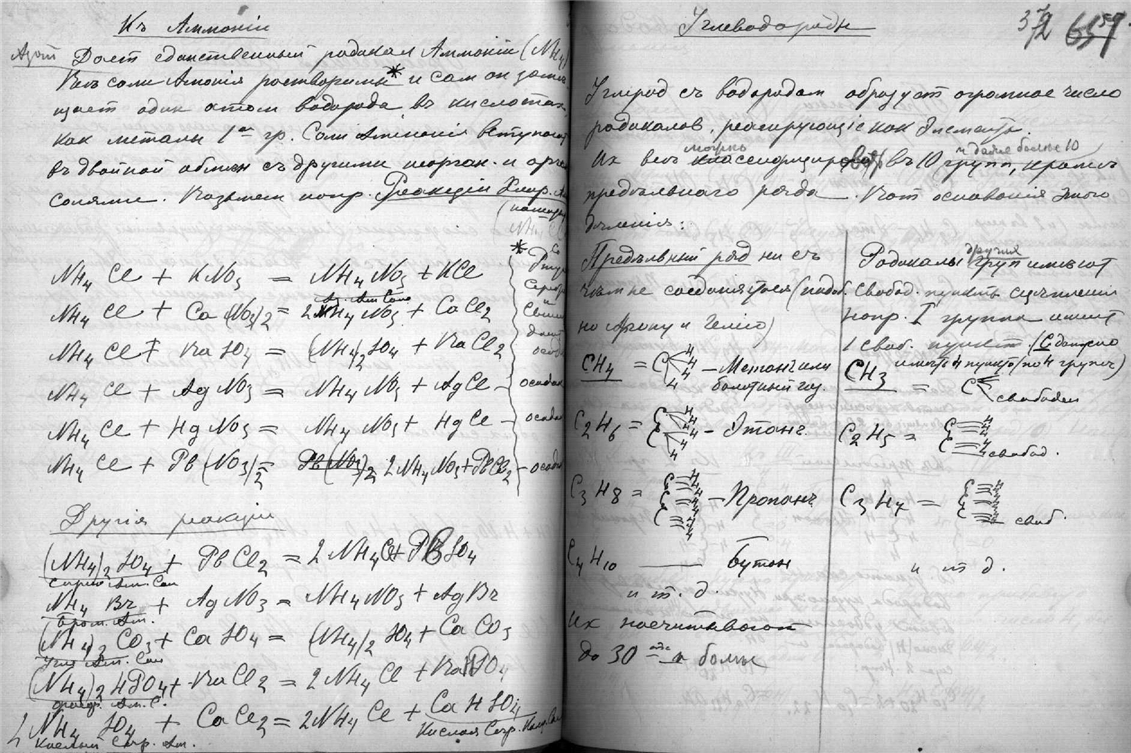 Къ Аммонію
Азот Дает единственный радикал Аммоній (NH4)
Всѣ соли Амонія растворимы * и сам он заме
щает один атом водорода въ кислотах
как металл 1ой гр. Соли Аммонія вступают
въ двойной обмен съ другими неорган. и орган
солями. Возьмем напр. Реакціи Хлор. Ам
(нашатырь
NH4 Cl + KNO3 = NH4 NO3 + KCl
Аз. Ам. Соль
NH4 Cl + Ca(NO3)2 = 2NH4 NO3 + CaCl2
NH4 Cl + BaSO4 = (NH4)2 SO4 + BaCl2
NH4 Cl + AgNO3 = NH4 NO3 + AgCl – осадок
NH4 Cl + HgNO3 = NH4 NO3 + HgCl – осадок
NH4 Cl + Pb(NO3)2 = Pb(NO3)2 2NH4NO3 + PbCl2 – осадок
* Ртуть
Серебро
и
Свинец
дают
осадк
Другія реакціи
(NH4)2 SO4 + PbCl2 = 2NH4Cl + PbSO4
Сѣрно Ам. Сол
NH4 Br + AgNO3 = NH4NO3 + AgBr
Бром. Ам.
(NH4)2 CO3 + CaSO4 = (NH4)2 SO4 + CaCO3
Угле Ам. Сол
(NH4)2 HPO4 + BaCl2 = 2NH4 Cl + BaHPO4
фосфор. Ам. С.
2 NH4 SO4 + CaCl2 = 2NH4 Cl + CaHSO4
Кислый Сѣр. Ам. Кислая Сѣр. Кальц. Соль
Углеводороды
Углерод съ водородам образует огромное число
радикалов, реагирующіе как Элементы.
Их всѣх можнъ классифицировать въ 10 групп, и даже больше 10 кромѣ
предѣльного ряда. Вот основанія этого
дѣленія:
Предѣльный ряд ни съ
чѣм не соединяются (подоб.
но Аргону и Гелію)
CH4 = C H H H H – Метанъ или
болотный газ
C2H6 = – Этанъ
C3H8 = – Пропанъ
C4H10 —— Бутан
и т. д.
Их насчитывают
до 30 и болѣе
Радикалы другія групп имѣют
свобод. пункты сцѣпленія
напр. I группа имѣет
1 своб. пункт. (С должно
имѣть 4 пункта по 4 группы)
CH3 = C свободен
C2H5 = свобод.
C3H7 = своб.
и т д.